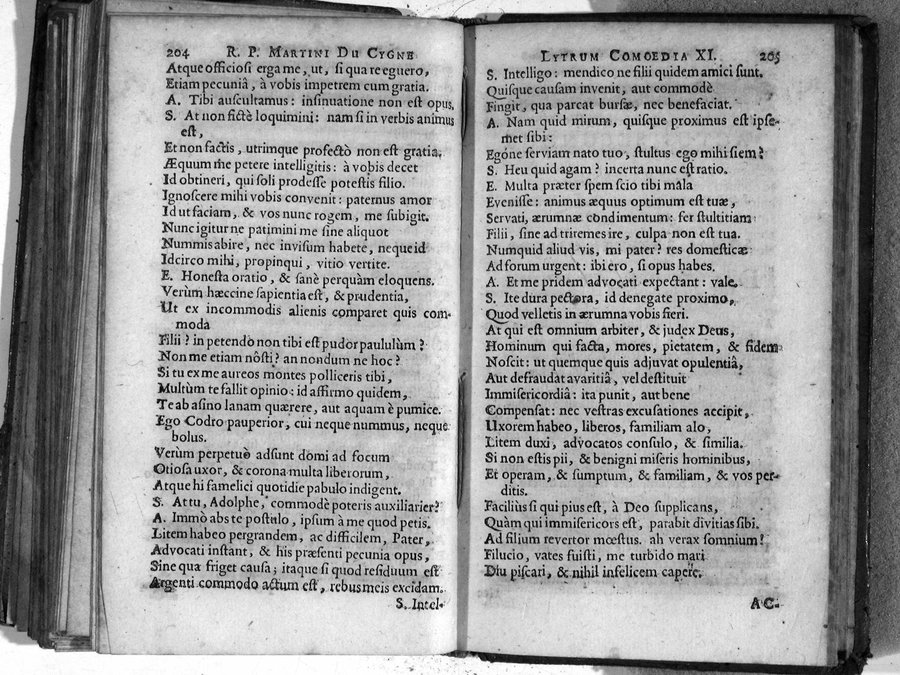 204 R. P. MARTINI DU CYGNE
Atque officiosi erga me, ut, si qua re eguero,
Etiam pecuniâ, à vobis impetrem cum gratia.
A. Tibi auscultamus: insinuatione non est opus,
S. At non fictè loquimini: nam si in verbis animus
est,
Et non factis, utrimque profectò non est gratia.
Æquum me petere intelligitis: à vobis decet
Id obtineri, qui soli prodesse potestis filio.
Ignoscere mihi vobis convenit: paternus amor
Id ut faciam, & vos nunc rogem, me subigit.
Nunc igitur ne patimini me sine aliquot
Nummis abire, nec invisum habete, neque id
Idcirco mihi, propinqui, vitio vertite.
E. Honesta oratio, & sanè perquàm eloquens.
Verùm hæccine sapientia est, & prudentia,
Ut ex incommodis alienis comparet quis com-
moda
Filii? in petendo non tibi est pudor paululùm?
Non me etiam nôsti? an nondum ne hoc?
Si tu ex me aureos montes polliceris tibi,
Multùm te fallit opinio: id affirmo quidem,
Te ab asino lanam quærere, aut aquam è pumice.
Ego Codro pauperior, cui neque nummus, neque
bolus.
Verùm perpetuò adsunt domi ad focum
Otiosa uxor, & corona multa liberorum,
Atque hi famelici quotidie pabulo indigent.
S. At tu, Adolphe, commodè poteris auxiliarier?
A. Immò abs te postulo, ipsum à me quod petis.
Litem habeo pergrandem, ac difficilem, Pater,
Advocati instant, & his præsenti pecunia opus,
Sine qua friget causa; itaque si quod residuum est
Argenti commodo actum est, rebus meis excidam.
S. Intel-
LYTRUM COMOEDIA XI. 205
S. Intelligo: mendico ne filii quidem amici sunt.
Quisque causam invenit, aut commodè
Fingit, qua parcat bursæ, nec benefaciat.
A. Nam quid mirum, quisque proximus est ipse-
met sibi:
Egóne serviam nato tuo, stultus ego mihi siem?
S. Heu quid agam? incerta nunc est ratio.
E. Multa præter spem scio tibi mala
Evenisse: animus æquus optimum est tuæ,
Servati, ærumnæ condimentum: fer stultitiam
Filii, sine ad triremes ire, culpa non est tua.
Numquid aliud vis, mi pater? res domesticæ
Ad forum urgent: ibi ero, si opus habes.
A. Et me pridem advocati expectant: vale.
S. Ite dura pectora, id denegate proximo,
Quod velletis in ærumna vobis fieri.
At qui est omnium arbiter, & judex Deus,
Hominum qui facta, mores, pietatem, & fidem
Noscit: ut quemque quis adjuvat opulentiâ,
Aut defraudat avaritiâ, vel destituit
Immisericordiâ: ita punit, aut bene
Compensat: nec vestras excusationes accipit,
Uxorem habeo, liberos, familiam alo,
Litem duxi, advocatos consulo, & similia.
Si non estis pii, & benigni miseris hominibus,
Et operam, & sumptum, & familiam, & vos per-
ditis.
Facilius si qui pius est, à Deo supplicans,
Quàm qui immisericors est, parabit divitias sibi.
Ad filium revertor mœstus. ah verax somnium?
Filucio, vates fuisti, me turbido mari
Diu piscari, & nihil infelicem capere.
AC-